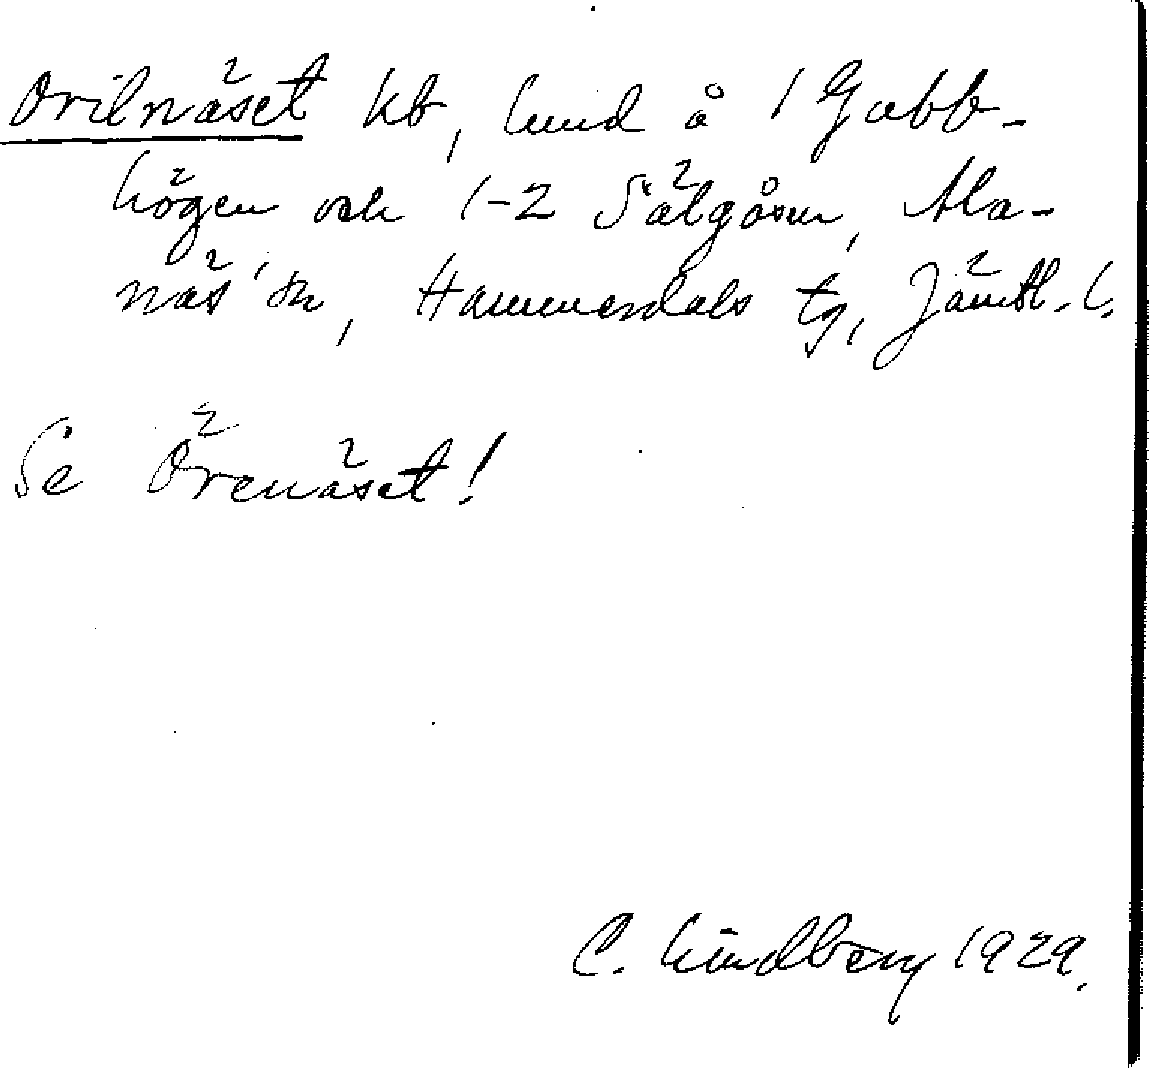 Orilnäset kb, lund å 1 Gubb-
högen och 1-2 Sälgåsen, Ala-
näs sn, Hammerdals tg, Jämtl. l.
Se Örenäset!
C. Lindberg 1929.